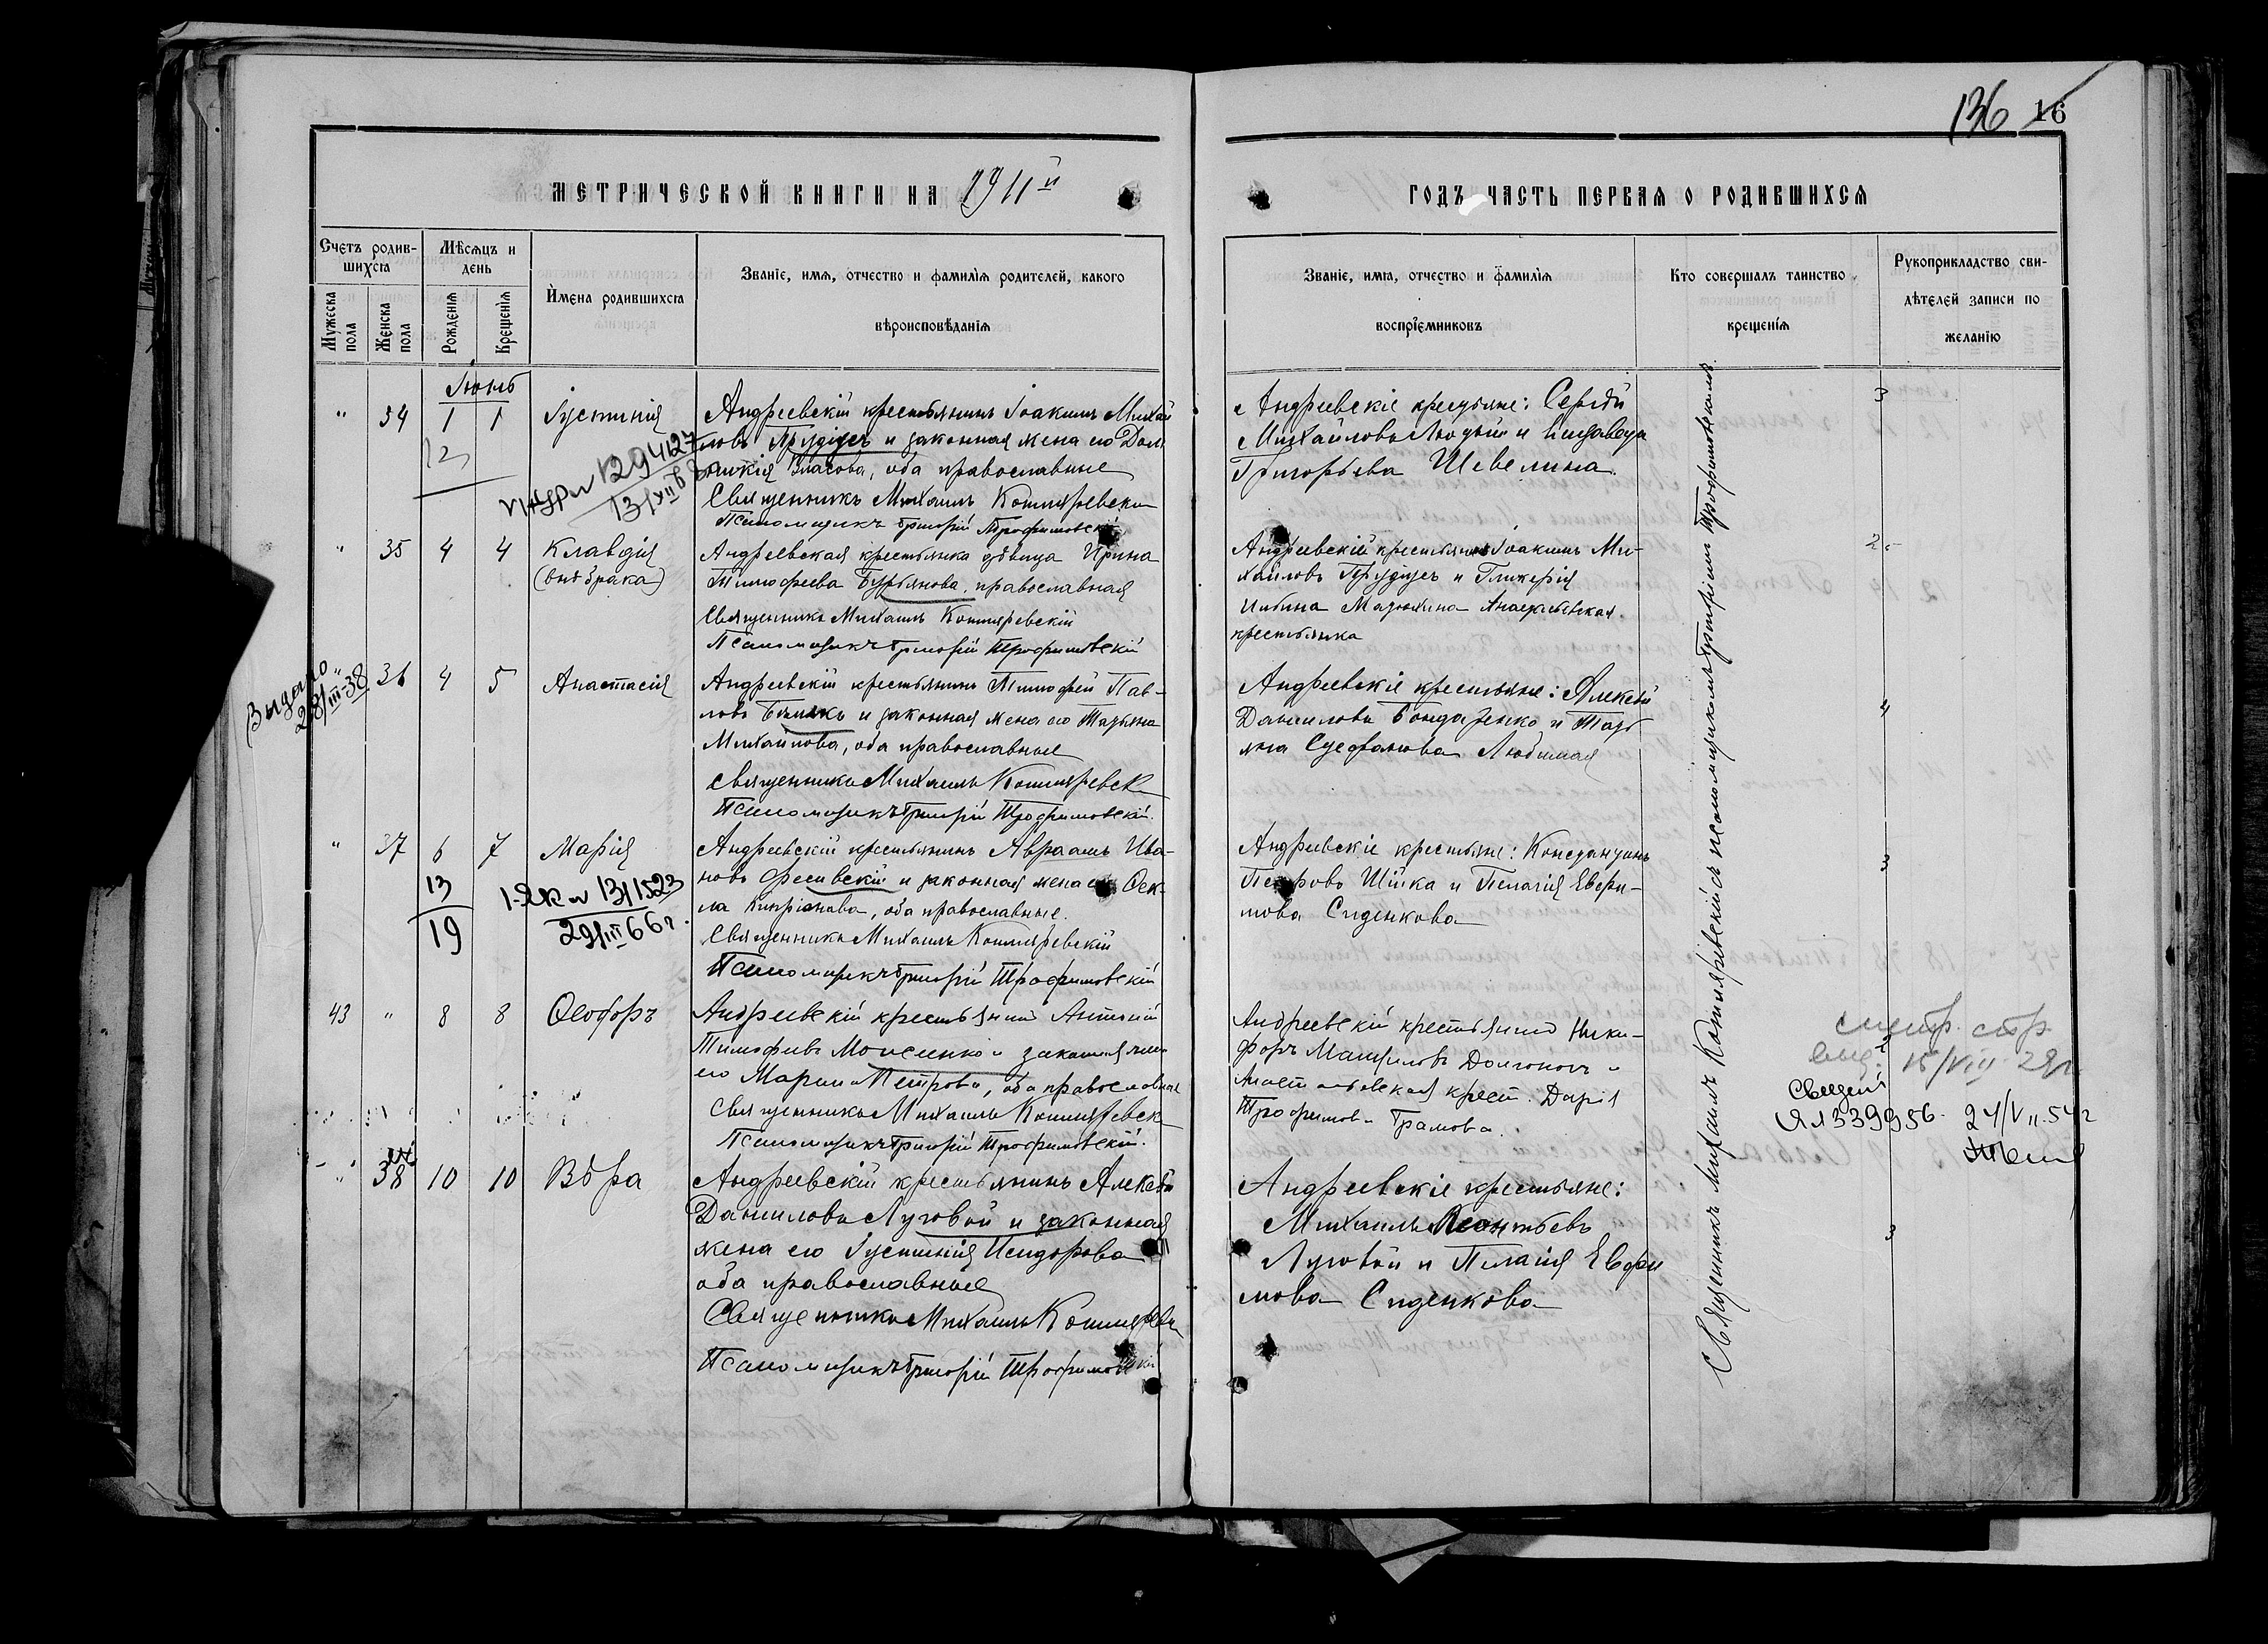 136 16
МЕТРИЧЕСКОЙ КНИГИ НА 1911й
ГОДЪ ЧАСТЬ ПЕРВАЯ О РОДИВШИХСЯ
Счетъ родив-
шихся
Мужеска пола
Женска пола
Мѣсяцъ и
день
Рожденія
Крещенія
Имена родившихся
Званіе, имя, отчество и фамилія родителей, какого
вѣроисповѣданія
Званіе, имя, отчество и фамилія
воспріемниковъ
Кто совершалъ таинство
крещенія
Рукоприкладство сви-
дѣтелей записи по
желанію
Іюнь
" 34 1 1 Іустинія
Андреевскій крестьянинъ Іоакимъ Михай
ловъ и законная жена его Дом
Власова, оба православные
Священникъ Михаилъ Котляревски
Псаломщикъ Григорій Трофимовскі
Андреевскіе крестьяне: Сергѣй
Михайловъ и Елисавета
Григорьева Шевелина.
3
" 35 4 4 Клавдія
(внѣ брака)
Андреевская крестьянка дѣвица Ирина
Тимофеева Бурьянова, православная
Священникъ Михаилъ Котляревскій
Псаломщикъ Григорій Трофимовскій
Андреевскій крестьянинъ Іоакимъ Ми-
хайловъ и Гликерія
крестьянка
2
Выдано
28/III-38
" 36 4 5 Анастасія
Андреевскій крестьянинъ Тимофей Пав-
ловъ и законная жена его Татьяна
Михайлова, оба православные
Священникъ Михаилъ Котляревск
Псаломщикъ Григорій Трофимовскій.
Андреевскіе крестьяне: Алексѣй
Даниловъ Бондаренко и Тать
яна Стефанова Любимая
4
" 37 6 7 Марія
13
19
29/III 66г.
Андреевскій крестьянинъ Авраамъ Ива-
новъ Фесивскій и законная жена его Ѳек-
ла Кипріанова, оба православные.
Священникъ Михаилъ Котляревскій
Псаломщикъ Григорій Трофимовскій
Андреевскіе крестьяне: Константинъ
Петровъ Шійка и Пелагія Евфи-
мова Сиденкова
3
43 " 8 8 Ѳеодоръ
Андреевскій крестьянинъ Антоній
Тимофеевъ Моисеенко и законная жена
его Марія Петрова, оба православные
Священникъ Михаилъ Котляревск
Псаломщикъ Григорій Трофимовскій.
Андреевскій крестьянинъ Ники-
форъ
крест. Дарія
Трофимова
15/VIII 29г.
339956 24/VII.54г
" 38 10 10 Вѣра
Андреевскій крестьянинъ Алексѣй
Даниловъ Луговой и законная
жена его Іустинія Исидорова
оба православные
Священникъ Михаилъ Котлярев
Псаломщикъ Григорій Трофимовскій
Андреевскіе крестьяне:
Михаилъ Леонтьевъ
Луговой и Пелагія Евфи
мова Сиденкова
3
Священникъ Михаилъ Котляревскій съ псаломщикомъ Григоріемъ Трофимовскимъ